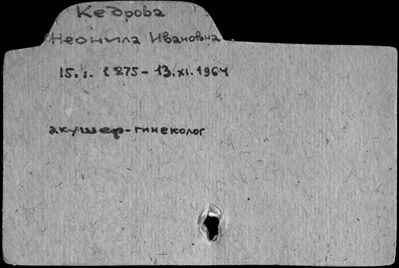 Кедрова
Неонила Ивановна
15.I.1875-13.XI.1964
акушер-гинеколог